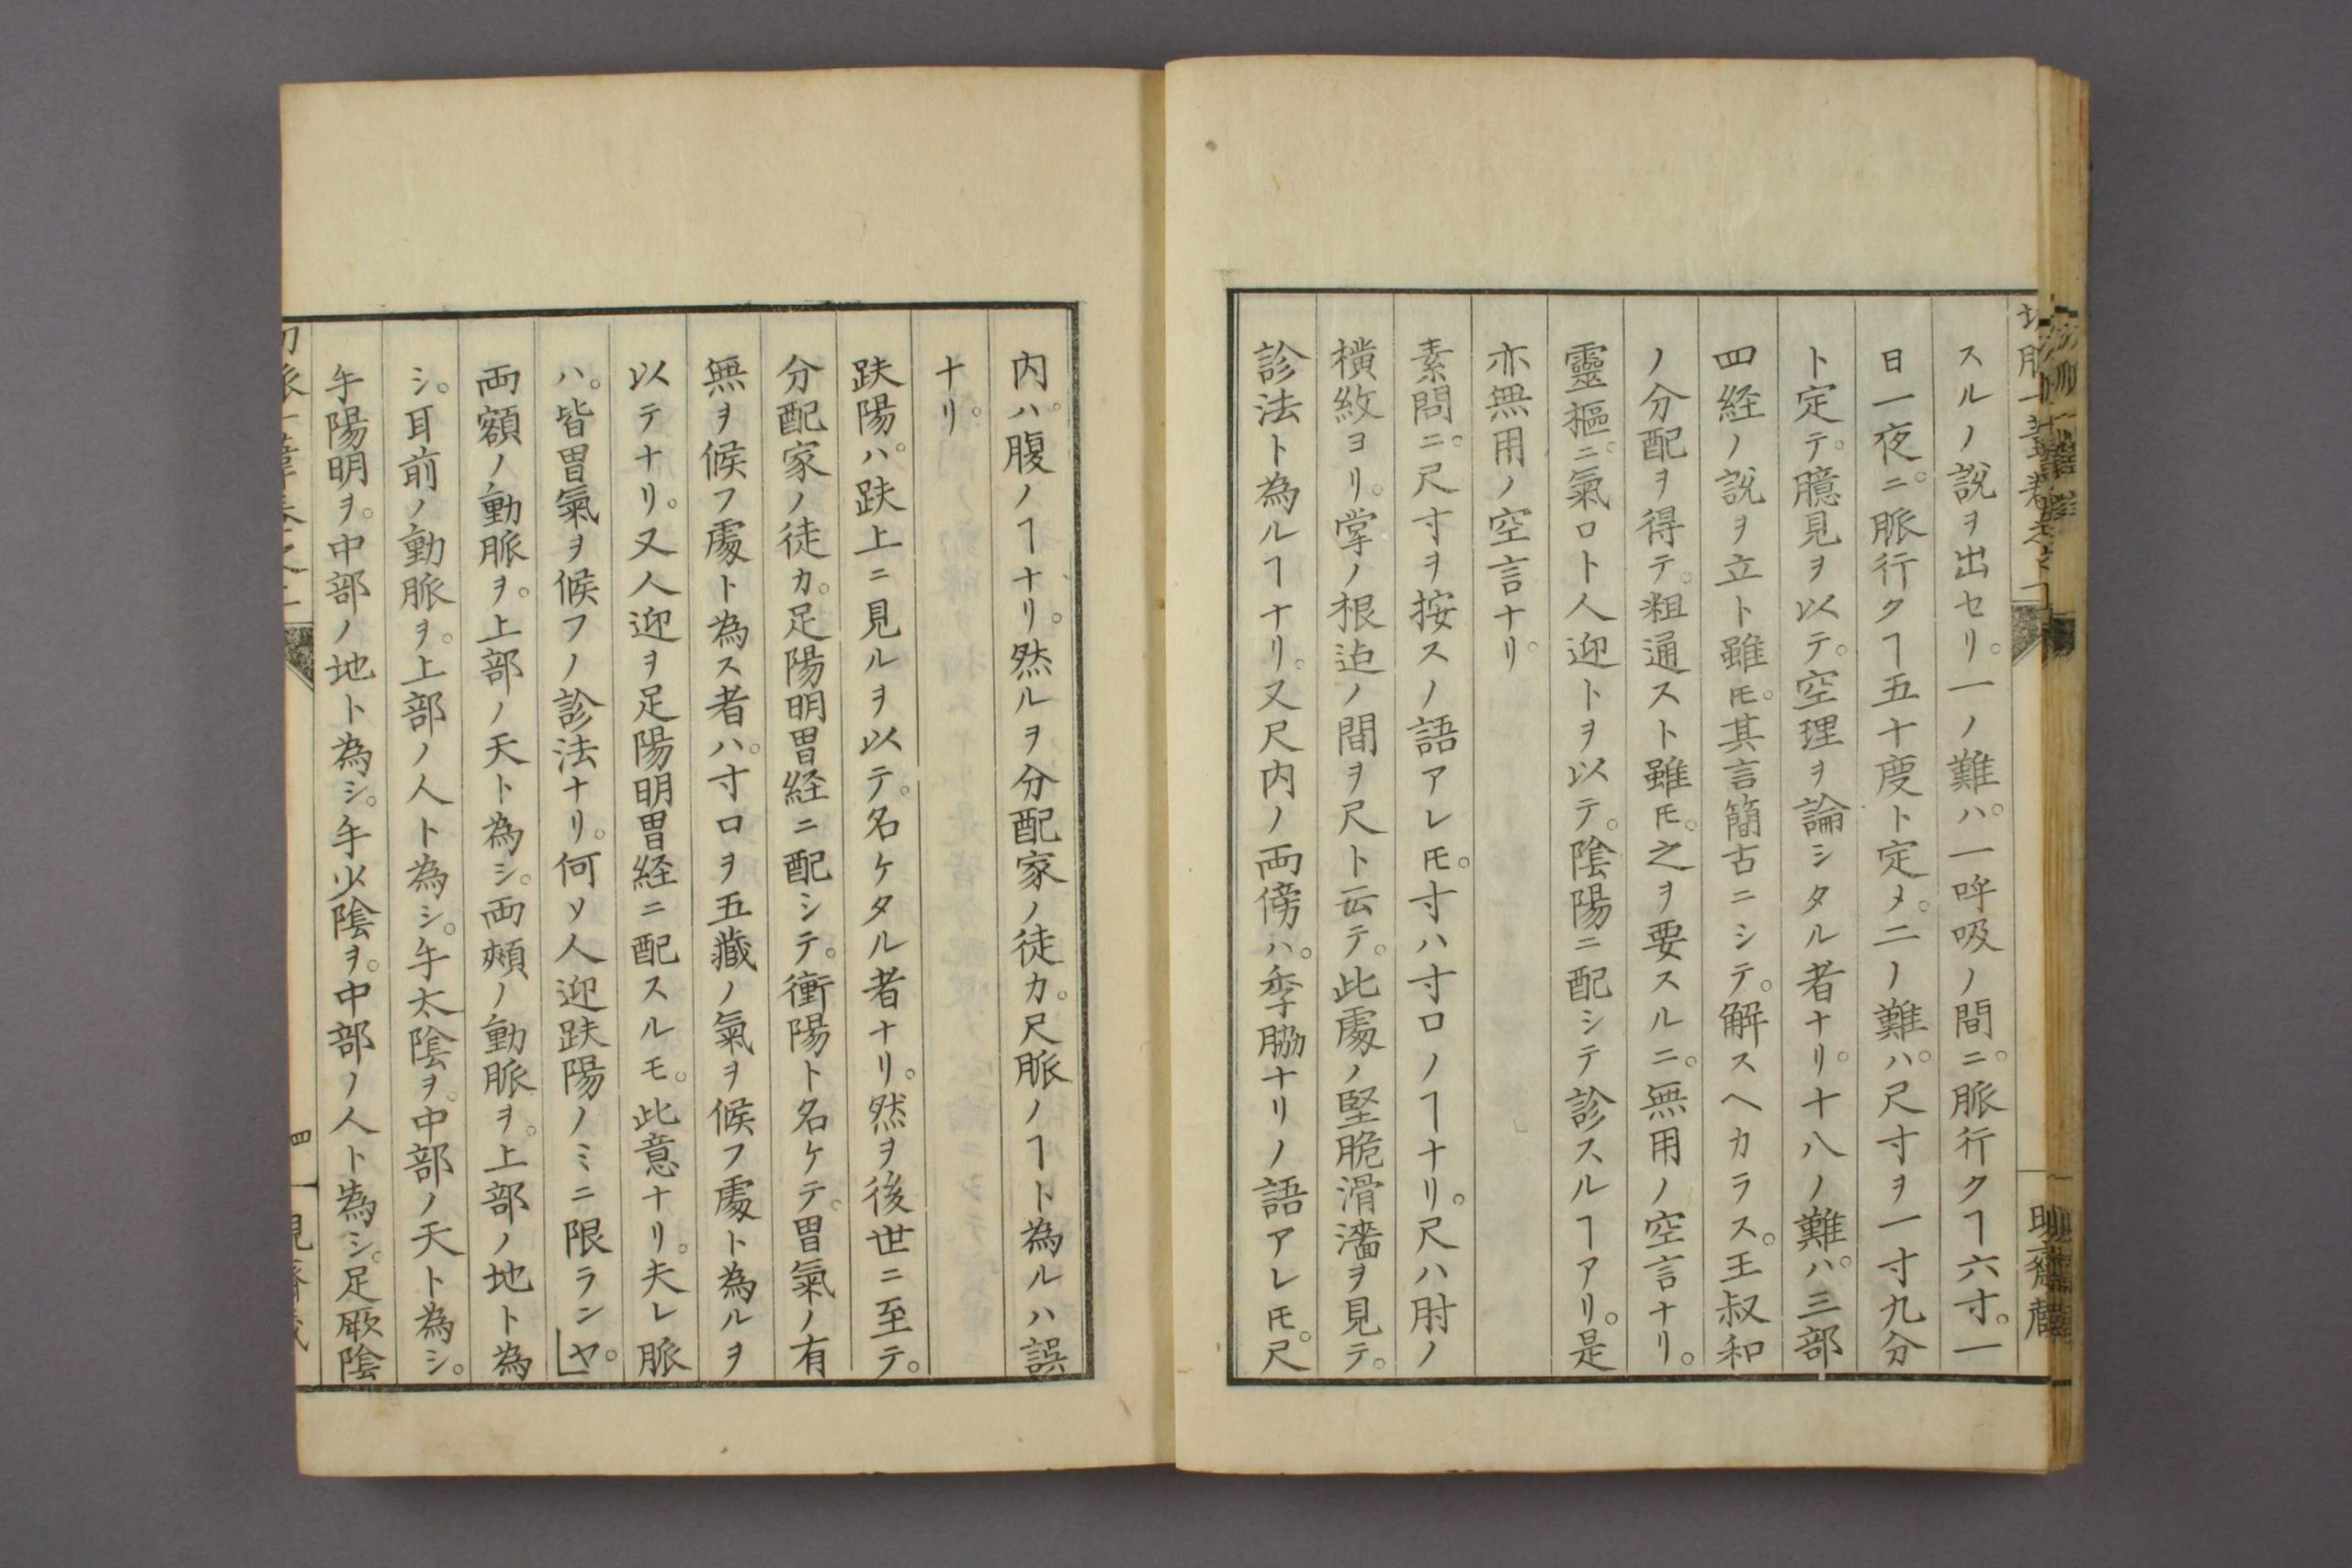 スルノ說ヲ出セリ。一ノ難ハ。一呼吸ノ間ニ。脈行クヿ六寸。一
日一夜ニ。脈行クヿ五十度ト定メ。二ノ難ハ。尺寸ヲ一寸九分
ト定テ。臆見ヲ以テ。空理ヲ論シタル者ナリ。十八ノ難ハ。三部
四経ノ說ヲ立ト雖𪜈。其言簡古ニシテ。解スヘカラス。王叔和
ノ分配ヲ得テ。粗通スト雖𪜈。之ヲ要スルニ。無用ノ空言ナリ。
靈樞ニ。氣口ト人迎トヲ以テ。陰陽ニ配シテ診スルヿアリ。是
亦無用ノ空言ナリ。
素問ニ。尺寸ヲ按スノ語アレ𪜈。寸ハ寸口ノヿナリ。尺ハ肘ノ
橫紋ヨリ。掌ノ根迠ノ間ヲ尺ト云テ。此處ノ堅脆滑濇ヲ見テ。
診法ト為ルヿナリ。又尺内ノ両傍ハ。季脇ナリノ語アレ𪜈。尺
内ハ。腹ノヿナリ。然ルヲ分配家ノ徒カ。尺脈ノヿト為ルハ誤
ナリ。
趺陽ハ。趺上ニ見ルヲ以テ。名ケタル者ナリ。然ヲ後世ニ至テ。
分配家ノ徒カ。足陽明胃経ニ配シテ。衝陽ト名ケテ。胃氣ノ有
無ヲ候フ處ト為ス者ハ。寸口ヲ五藏ノ氣ヲ候フ處ト為ルヲ
以テナリ。又人迎ヲ足陽明胃経ニ配スルモ。此意ナリ。夫レ脈
ハ。皆胃氣ヲ候フノ診法ナリ。何ソ人迎趺陽ノミニ限ランヤ。」
両額ノ動脈ヲ。上部ノ天ト為シ。両頰ノ動脈ヲ。上部ノ地ト為
シ。耳前ノ動脈ヲ。上部ノ人ト為シ。手太陰ヲ。中部ノ天ト為シ。
手陽明ヲ。中部ノ地ト為シ。手少陰ヲ。中部ノ人ト為シ。足厥陰
四